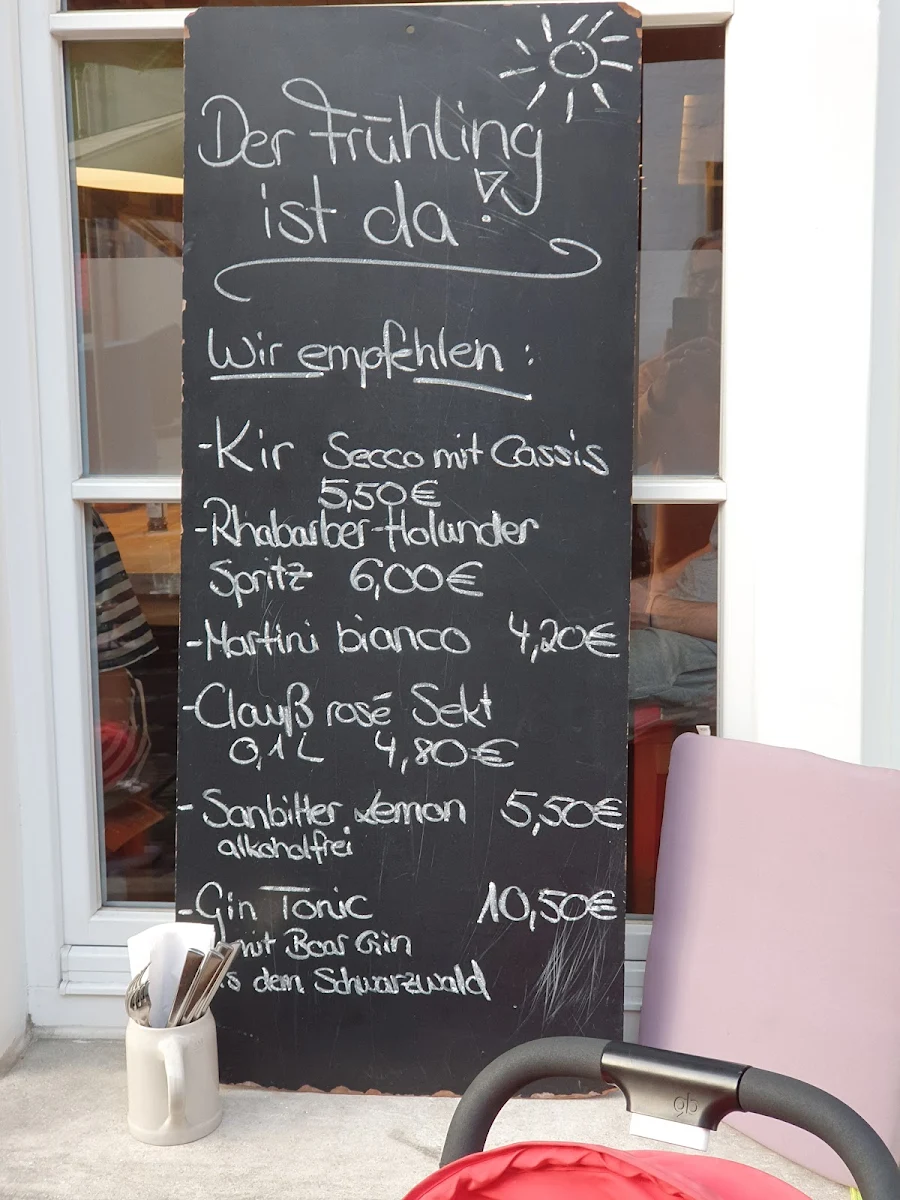 Der Frühling
ist da!
Wir empfehlen:
-Kir Secco mit Cassis
5,50€
-Rhabarber-Holunder
Spritz 6,00€
-Martini bianco 4,20€
-Clauß rosé Sekt
0,1L 4,80€
-Sanbitter Lemon 5,50€
alkoholfrei
-Gin Tonic 10,50€
mit Boar Gin
s dem Schwarzwald
gb